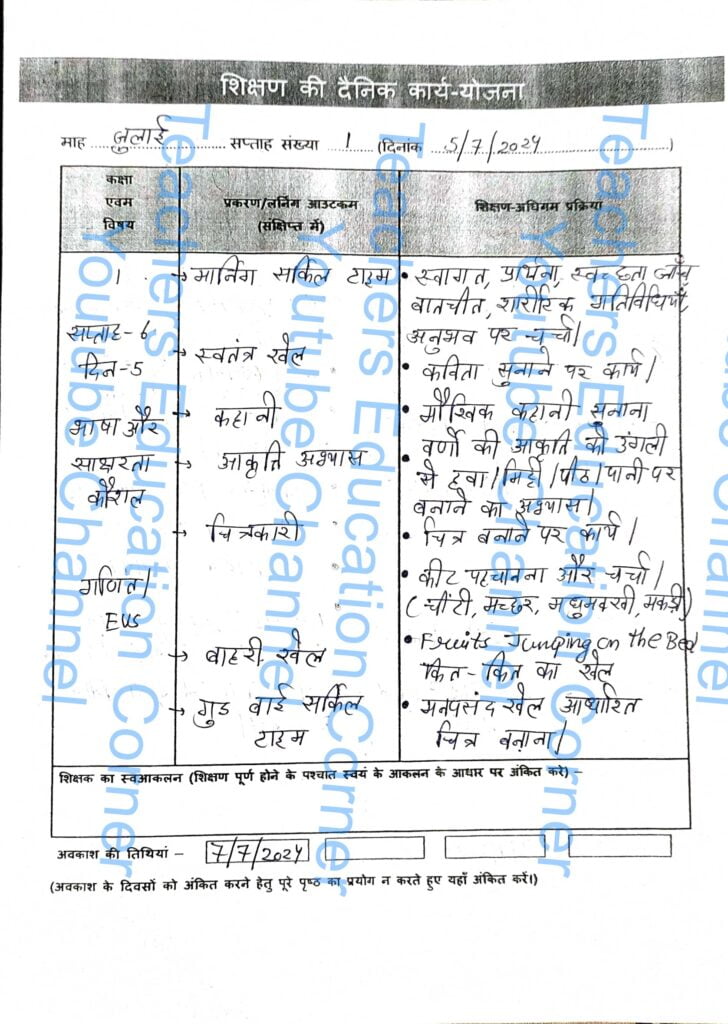 शिक्षण की दैनिक कार्य-योजना
माह जुलाई सप्ताह संख्या 1 (दिनांक 5/7/2024)
कक्षा एवम विषय
प्रकरण/लर्निंग आउटकम (संक्षिप्त में)
शिक्षण-अधिगम प्रक्रिया
1
सप्ताह- 6
दिन-5
भाषा और
साक्षरता
कौशल
गणित/
EVS
→ मार्निंग सर्किल टाइम
→ स्वतंत्र खेल
→ कहानी
→ आकृति अभ्यास
→ चित्रकारी
→ बाहरी खेल
→ गुड बाई सर्किल
टाइम
• स्वागत, प्रार्थना, स्वच्छता जाँच
बातचीत, शारीरिक गतिविधियाँ,
अनुभव पर चर्चा।
• कविता सुनाने पर कार्य।
• मौखिक कहानी सुनाना
• वर्णों की आकृति को उंगली
से हवा/मिट्टी/पीठ/पानी पर
बनाने का अभ्यास।
• चित्र बनाने पर कार्य।
• कीट पहचानना और चर्चा।
(चींटी, मच्छर, मधुमक्खी, मकड़ी)
• Fruits Jumping on the Bed
कित- कित का खेल
• मनपसंद खेल आधारित
चित्र बनाना।
शिक्षक का स्वआकलन (शिक्षण पूर्ण होने के पश्चात स्वयं के आकलन के आधार पर अंकित करे) –
अवकाश की तिथियां – 7/7/2024
(अवकाश के दिवसों को अंकित करने हेतु पूरे पृष्ठ का प्रयोग न करते हुए यहाँ अंकित करें।)
Teachers Education Corner
Youtube Channel
Teachers Education Corner
Youtube Channel
Teachers Education Corner
Youtube Channel